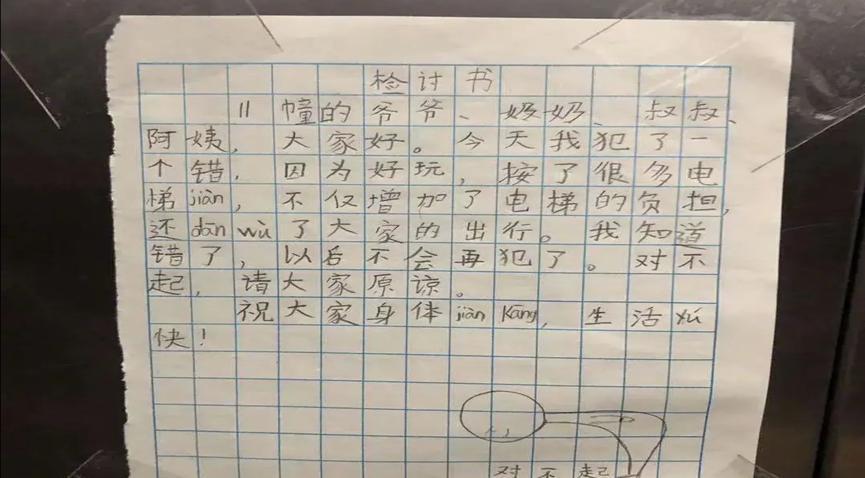 检讨书
11幢的爷爷、奶奶、叔叔、
阿姨，大家好。今天我犯了一
个错，因为好玩，按了很多电
梯jiàn，不仅增加了电梯的负担，
还dān wù了大家的出行。我知道
错了，以后不会再犯了。对不
起，请大家原谅。
祝大家身体jiàn kāng，生活yú
快！
对不起